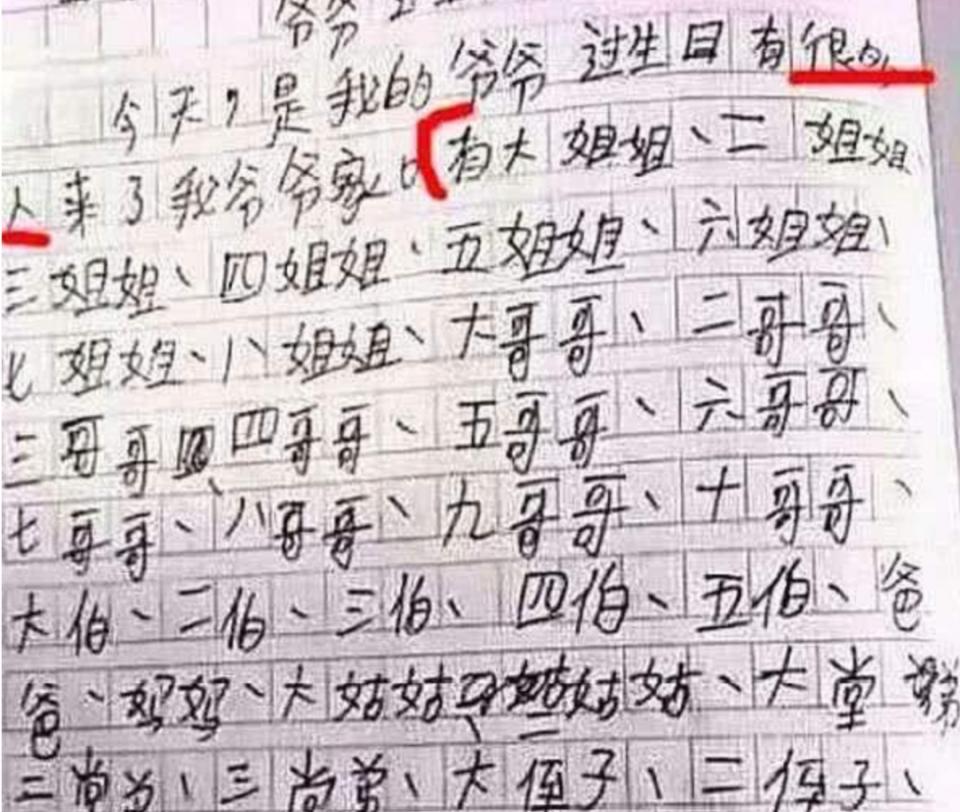 爷爷
今天,是我的爷爷过生日有很的
人来了我爷爷家。有大姐姐、二姐姐
三姐姐、四姐姐、五姐姐、六姐姐、
七姐姐、八姐姐、大哥哥、二哥哥、
三哥哥、四哥哥、五哥哥、六哥哥、
七哥哥、八哥哥、九哥哥、十哥哥、
大伯、二伯、三伯、四伯、五伯、爸
爸、妈妈、大姑姑、二姑姑、大堂弟
二尚弟、三尚弟、大侄子、二侄子、